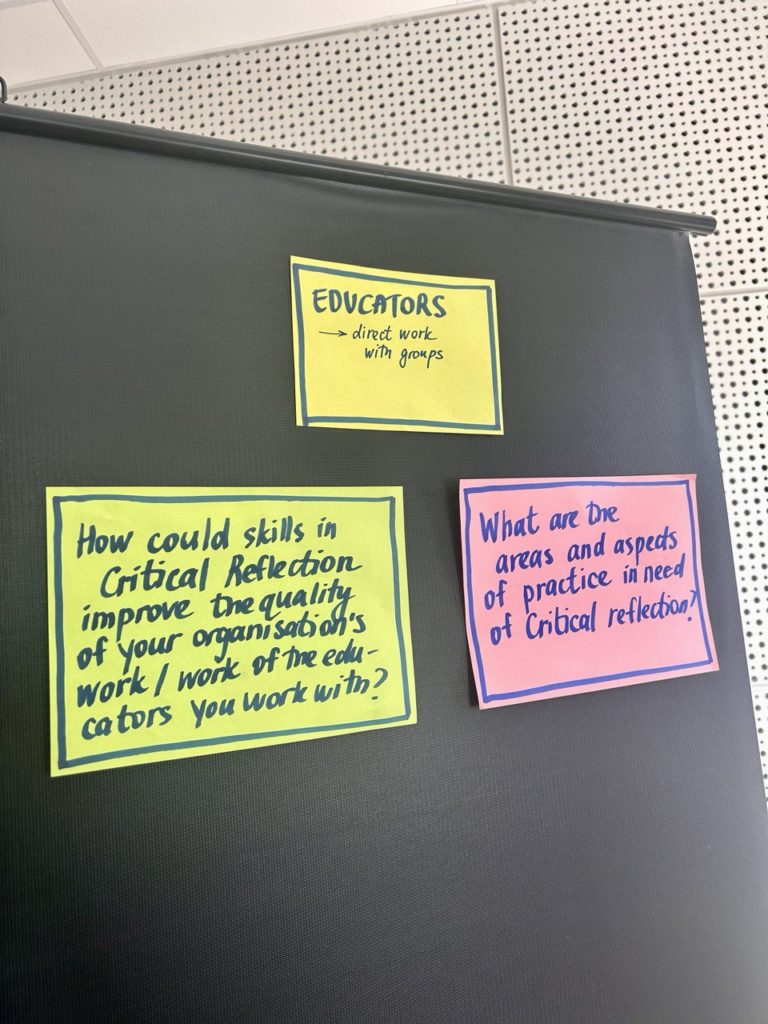 EDUCATORS
→ direct work
with groups
How could skills in
Critical Reflection
improve the quality
of your organisation's
work / work of the edu-
cators you work with?
What are the
areas and aspects
of practice in need
of Critical reflection?